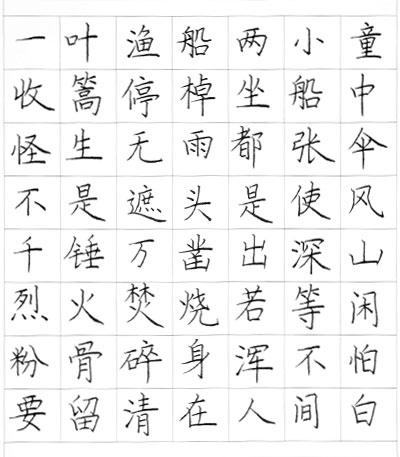 一叶渔船两小童
收篙停棹坐船中
怪生无雨都张伞
不是遮头是使风
千锤万凿出深山
烈火焚烧若等闲
粉骨碎身浑不怕
要留清在人间白